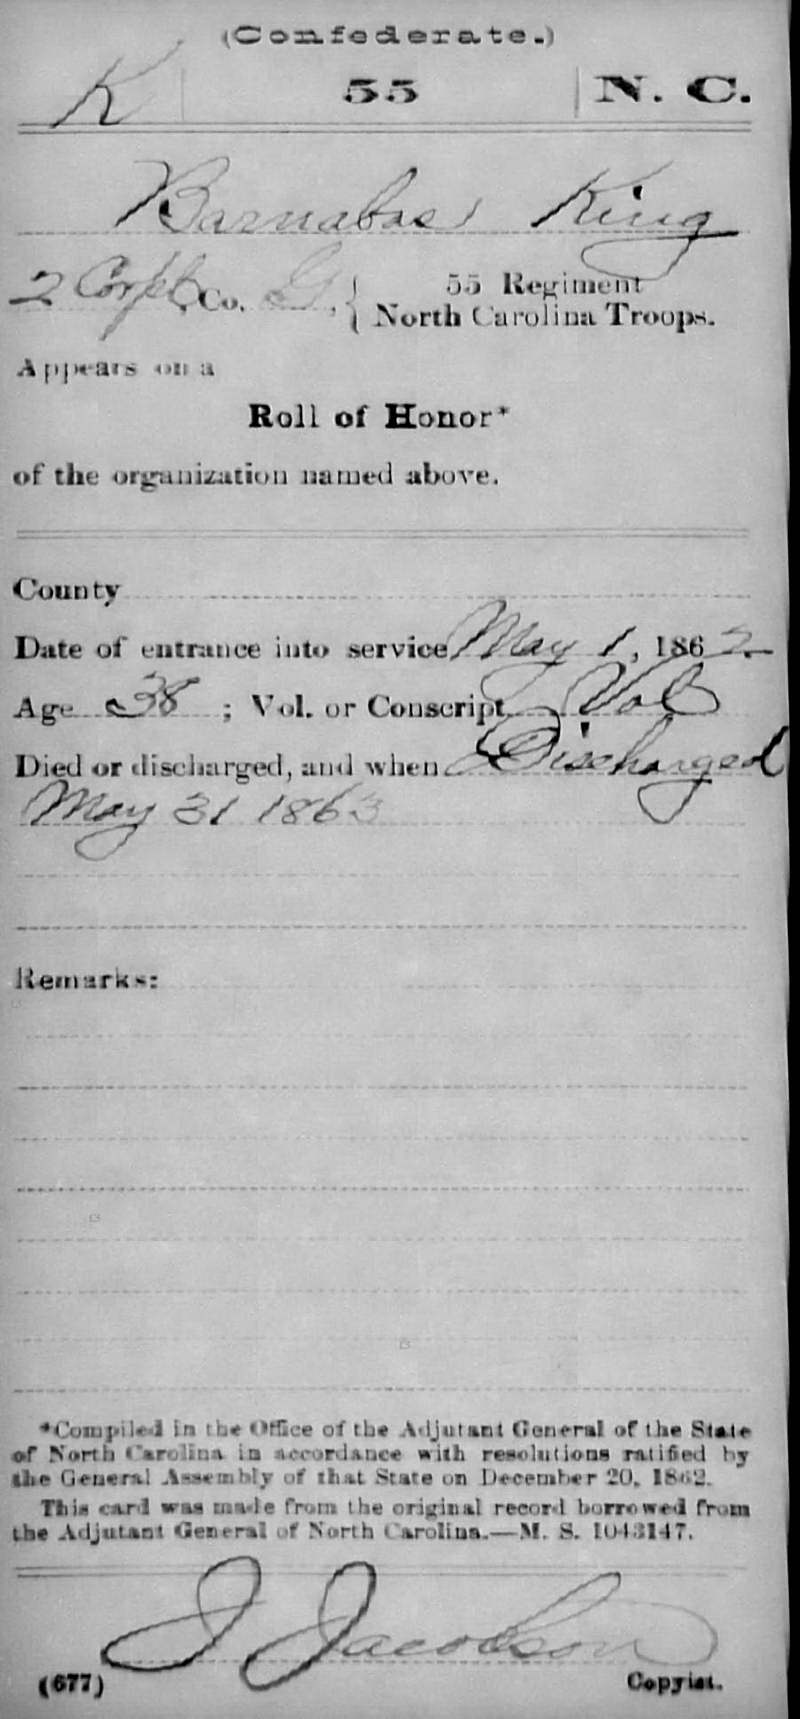 (Confederate.)
K 55 N. C.
Barnabas King
2 Corpl, Co. G, { 55 Regiment
North Carolina Troops.
Appears on a
Roll of Honor*
of the organization named above.
County
Date of entrance into service May 1, 1862
Age 38 ; Vol. or Conscript Vol
Died or discharged, and when Discharged
May 31 1863
Remarks:
*Compiled in the Office of the Adjutant General of the State
of North Carolina in accordance with resolutions ratified by
the General Assembly of that State on December 20, 1862.
This card was made from the original record borrowed from
the Adjutant General of North Carolina.—M. S. 1043147.
J Jacobson
(677) Copyist.